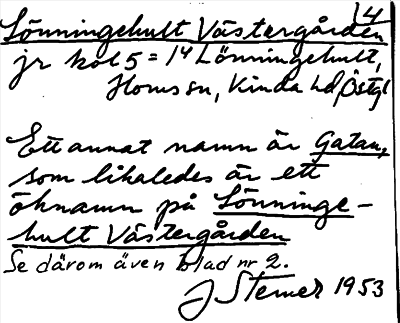 14
Lönningehult Västergården
jr kol 5 = 14 Lönningehult,
Horns sn, Kinda hd, Östgl
Ett annat namn är Gatan,
som likaledes är ett
öknamn på Lönninge-
hult Västergården
Se därom även blad nr 2.
J Sterner 1953